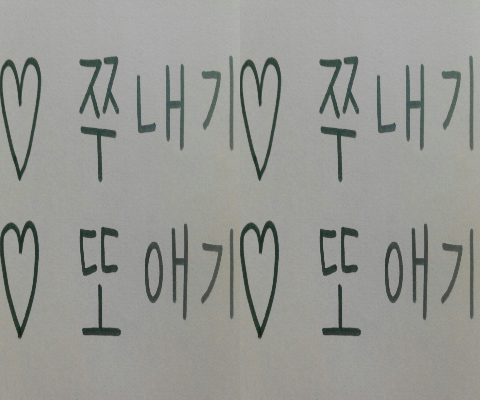 ♡ 쭈내기 ♡ 쭈내기
♡ 또애기 ♡ 또애기